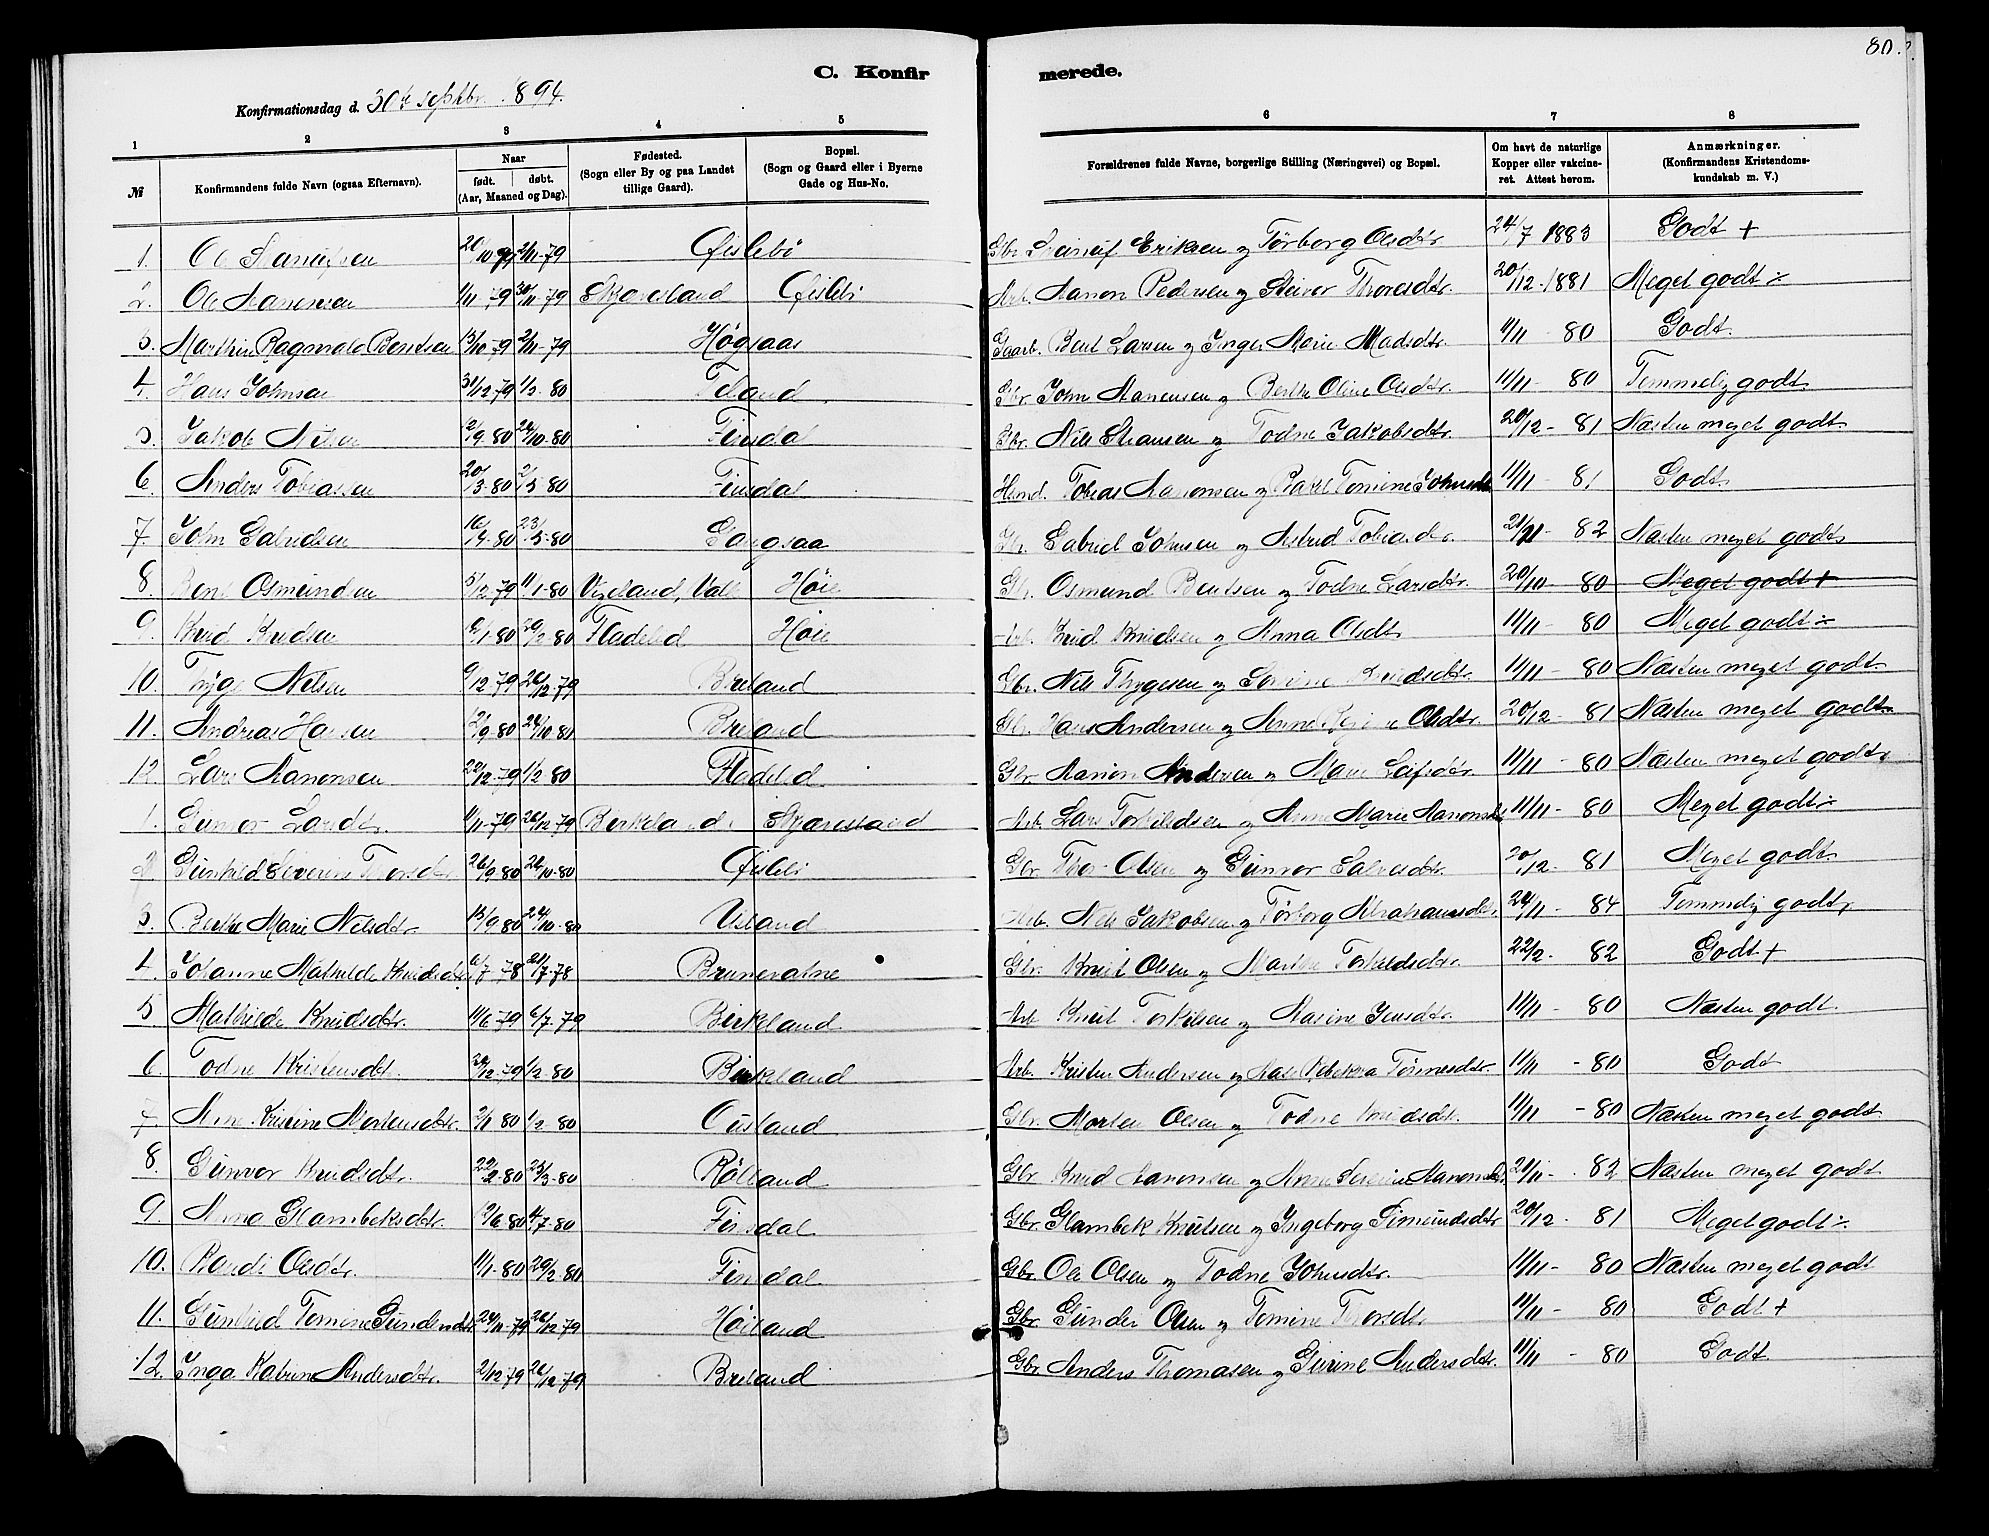 80.
C. Konfirmerede.
Konfirmationsdag d. 30te septbr. 1894.
1 2 3 4 5 6 7 8
№ Konfirmandens fulde Navn (ogsaa Efternavn). Naar født. døbt. (Aar, Maaned og Dag). Fødested. (Sogn eller By og paa Landet tillige Gaard). Bopæl. (Sogn og Gaard eller i Byerne Gade og Hus-No. Forældrenes fulde Navne, borgerlige Stilling (Næringsvei) og Bopæl. Om havt de naturlige Kopper eller vakcineret. Attest herom. Anmærkninger. (Konfirmandens Kristendomskundskab m. V.)
1. Ole 20/10 79 2/11-79 Øislebø Gbr. Eriksen og Tørborg Olsdtr. 24/7 1883 Godt +
2. Ole Aanensen 1/11-79 30/11-79 Skjævesland Øislebø Arb. Aanon Pedersen og Steinor Thoresdtr. 20/12-1881 Meget godt ÷
3. Marthin Ragnvald Bentsen 13/10-79 2/11-79 Høgsaas Gaarb. Bent Larsen og Inger Marie Madsdtr. 11/11 - 80 Godt.
4. Hans Johnsen 31/12-79 1/2-80 Gbr. John Aanensen og Berthe Oline Olsdtr. 11/11- 80 Temmelig godt.
5. Jakob Nilsen 12/9-80 24/10-80 Finsdal Gbr. Nils og Todne Jakobsdtr. 20/12- 81 Næsten meget godt
6. Anders Tobiassen 20/3-80 2/5-80 Finsdal Tobias Aanonsen og Rakel Tomine Johnsdtr 11/11 - 81 Godt
7. John Gabrielsen 16/4-80 23/5-80 Gangsaa Gbr. Gabriel Johnsen og Astrid Tobiasdtr. 21/11- 82 Næsten meget godt
8. Bent Osmundsen 5/12-79 11/1-80 Vigeland, Valle Høie Gbr. Osmund Bentsen og Todne Larsdtr. 20/10 - 80 Meget godt +
9. Knud Knudsen 6/1-80 29/2-80 Fladelid Høie Arb. Knud Knudsen og Anna Olsdtr 11/11 - 80 Meget godt ÷
10. Tryge Nilsen 9/12-79 26/12-79 Breland Gbr. Nils Thygesen og Knudsdtr. 11/11 - 80 Næsten meget godt.
11. Andreas Hansen 12/9-80 24/10-80 Breland Gbr. Hans Andersen og Anne Olsdtr. 20/12 - 81 Næsten meget godt
12. Lars Aanonsen 22/12-79 1/2-80 Fladelid Gbr. Aanon Andersen og Marie Leifsdtr. 11/11 - 80 Næsten meget godt
1. Gunvor Larsdtr. 11/11-79 26/12-79 Birkeland Skjævesland Arb. Lars Torkildsen og Anne Marie Aanonsdtr 11/11 - 80 Meget godt ÷
2. Gunhild Severine Thorsdtr 26/9-80 24/10-80 Øislebø Gbr. Thor Olsen og Gunvor Salvesdtr. 20/12- 81 Meget godt
3. Berthe Marie Nilsdtr. 13/9-80 24/10-80 Usland Arb. Nils Jakobsen og Tørborg Abrahamsdtr. 24/11 - 84 Temmelig godt,
4. Johanne Mathilde Knudsdtr 6/7-78 21/7-78 Brunevatne Gbr. Knut Olsen og Marthe Torkildsdtr. 22/2- 82 Godt +
5. Mathilde Knudsdtr. 11/6-79 6/7-79 Birkeland Arb Knut Torkilsen og Aasine Jensdtr. 11/11 - 80 Næsten godt.
6. Todne Kristensdtr. 24/12-79 1/2-80 Birkeland Arb. Kristen Andersen og Rebekka Tørresdtr. 11/11 - 80 Godt
7. Anne Kristine Mortensdtr. 2/1-80 1/2-80 Ousland Gbr. Morten Olsen og Todne Knudsdtr. 11/11 - 80 Næsten meget godt
8. Gunvor Knudsdtr. 22/2-80 23/3-80 Gbr Knud Aanonsen og Anne Severine Aanonsdtr. 21/11- 82 Næsten meget godt
9. Anna Glambeksdtr. 12/6-80 4/7-80 Finsdal Gbr. Glambek Knutsen og Ingeborg Simundsdtr 20/12 - 81 Meget godt ÷
10. Randi Olsdtr. 11/1-80 29/2-80 Finsdal Gbr. Ole Olsen og Todne Johnsdtr. 11/11- 80 Næsten meget godt
11. Gunhild Tomine Gundersdtr 24/11-79 26/12-79 Høiland Gbr. Gunder Olsen og Tomine Thorsdtr. 11/11 - 80 Godt +
12. Inga Katrine Andersdtr. 2/12-79 26/12-79 Breland Gbr Anders Thomasen og Gurine Andersdtr. 11/11 - 80 Godt